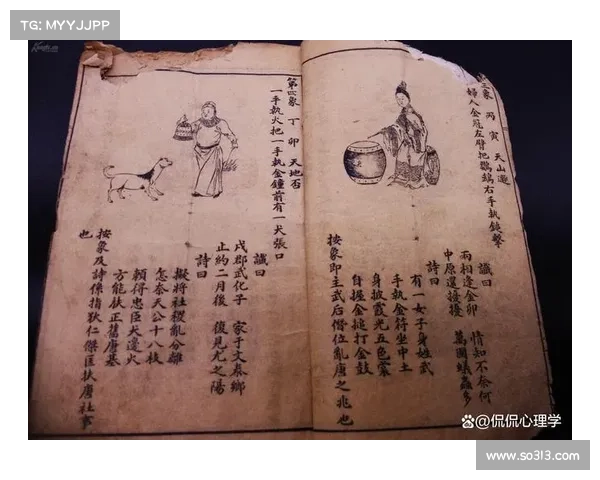 TG: MYYJJPP
三象 丙寅 天山遯
婦人金冠左臂把鸚鵡右手執鎚擊
讖曰
兩相逢金卯 情知不奈何
中原還擾擾 萬國蟻蟲多
詩曰
有一女子身姓武
手執金符坐中土
身披霞光五色裳
自握金搥打金鼓
按象即主武后僭位亂唐之兆也
第四象 丁卯 天地否
一手執火把一手執金鐘前有一犬張口
讖曰
戌郡武化子 家于文泰鄉
止約二月後 復見尤之陽
詩曰
擬將社稷亂分離
怎奈天公十八枝
賴得忠臣犬邊火
方能扶正舊唐基
按象及詩係指狄仁傑匡扶唐社事
也
@侃侃心理学
www.so313.com